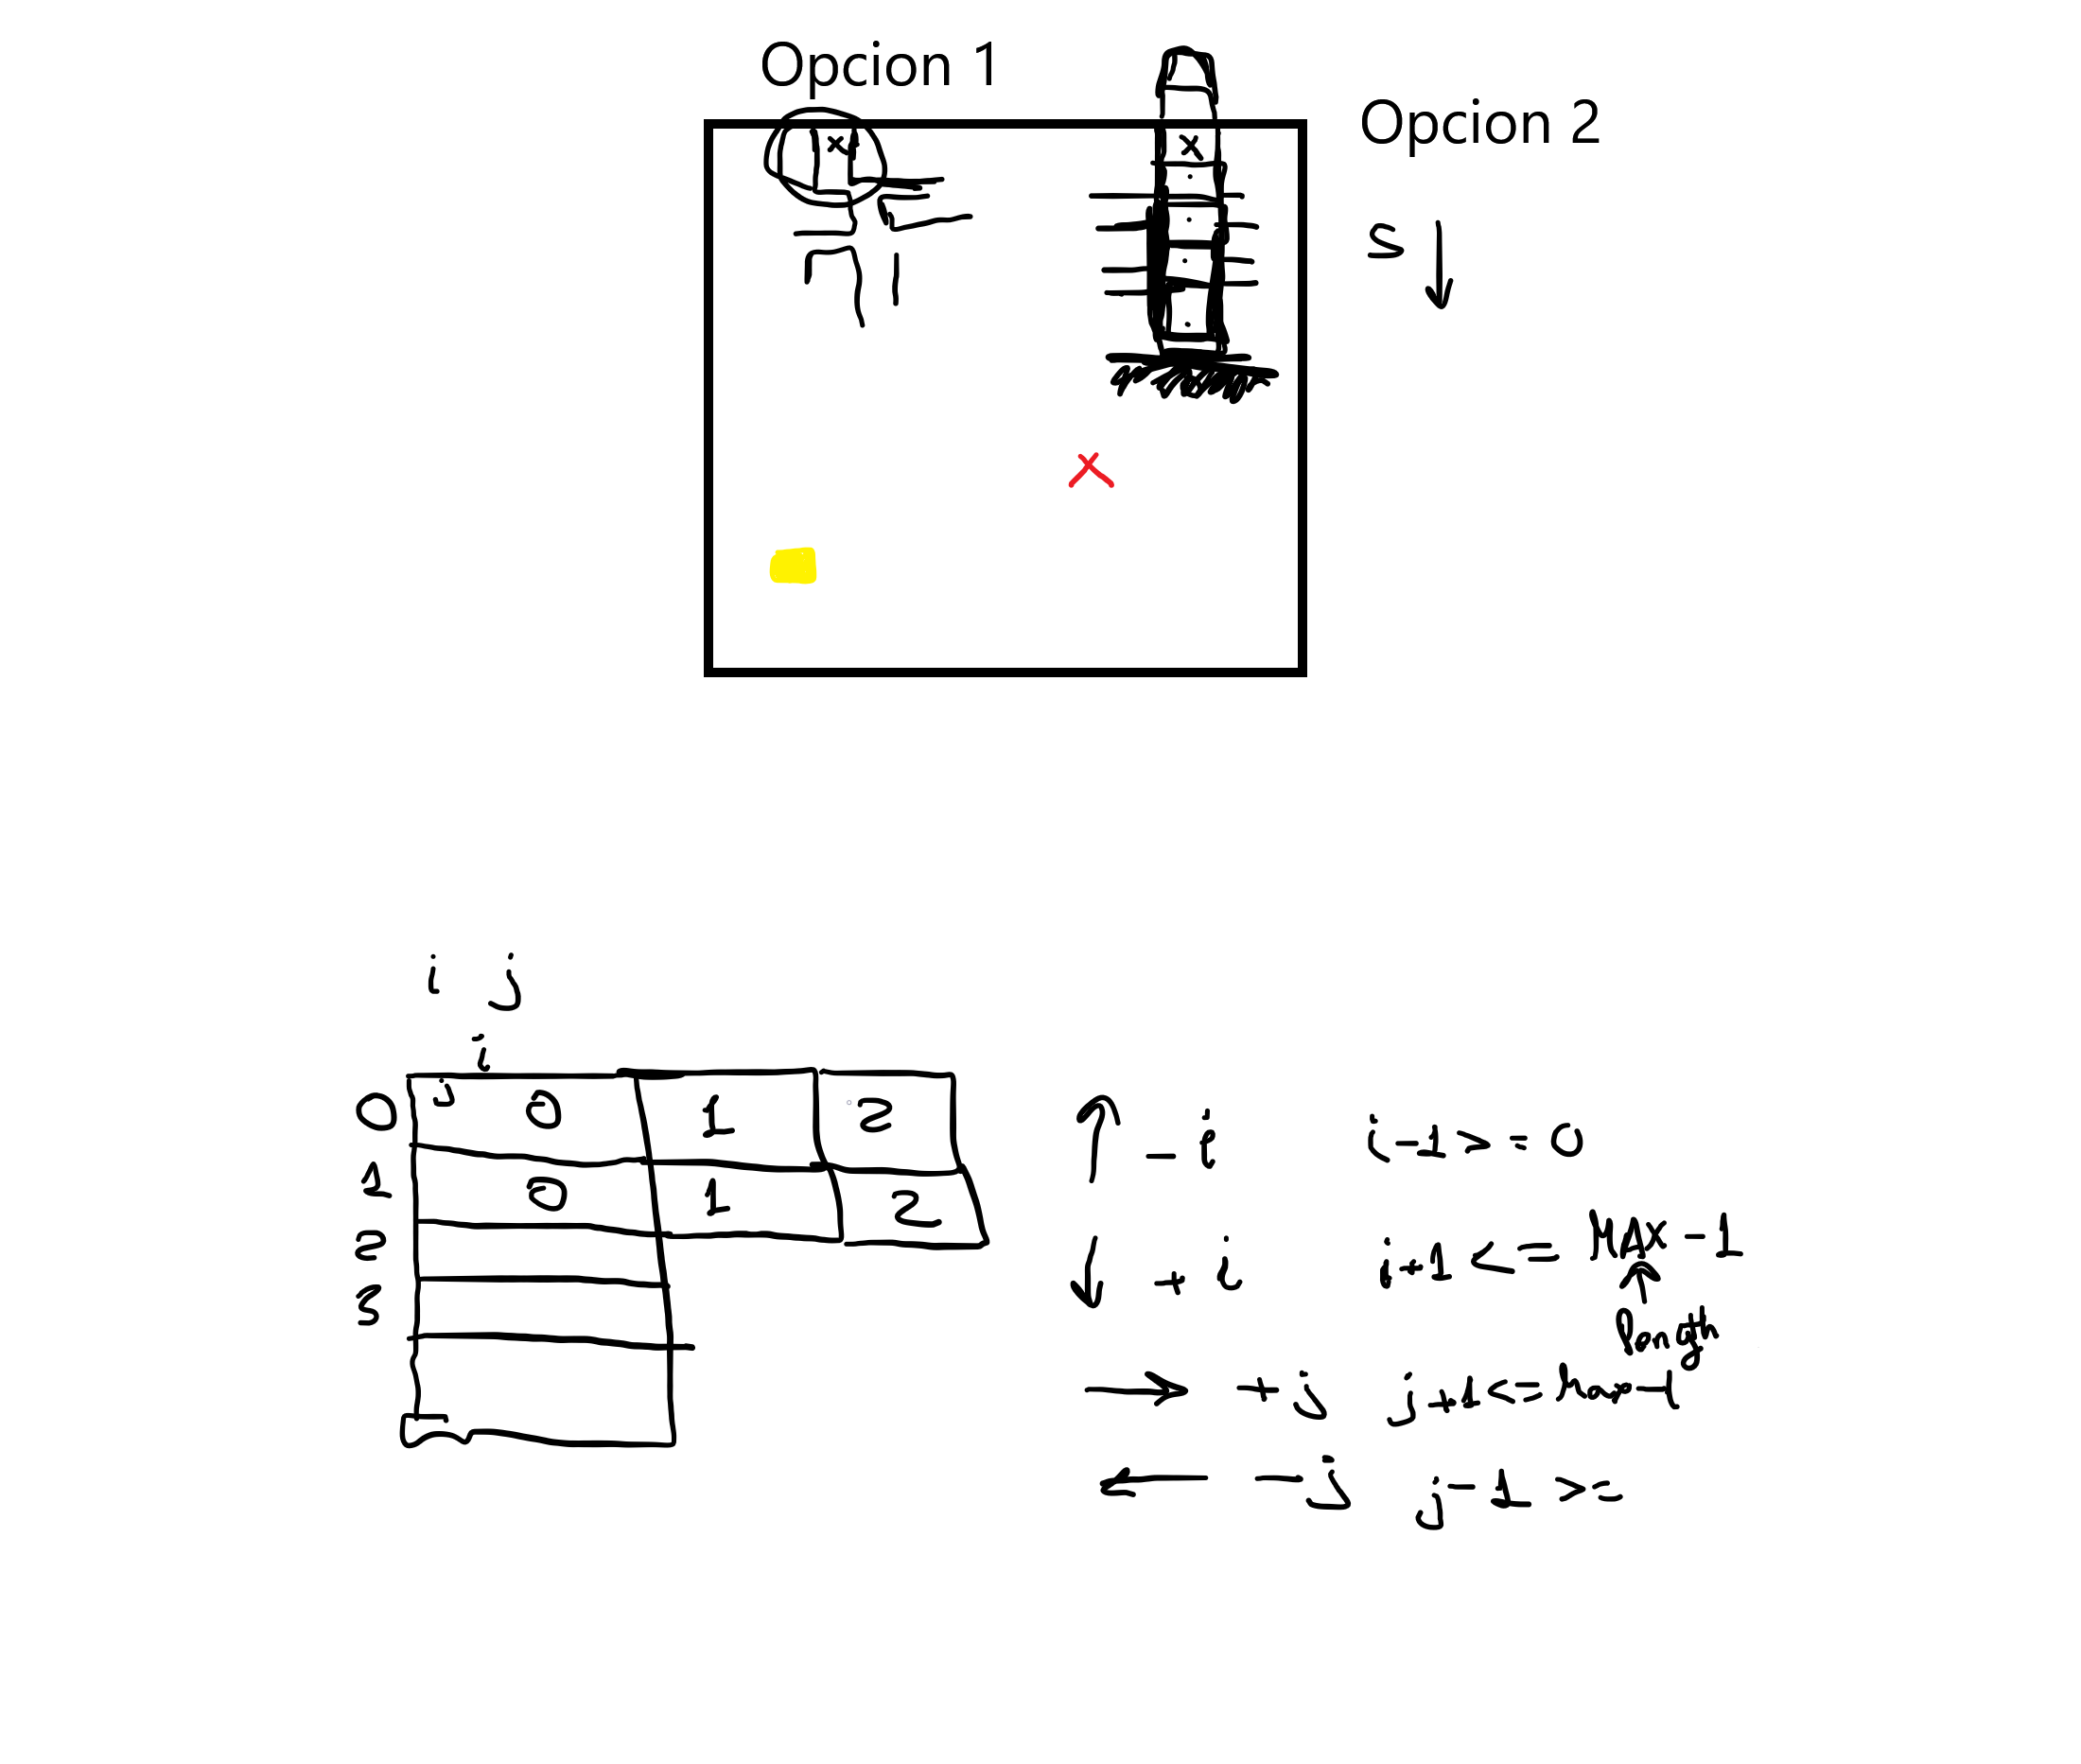 Opcion 1
Opcion 2
S
i j
i
j
0 0 1 2
1 0 1 2
2
3
- i i-1 >= 0
+ i i+1 <= MAX - 1
length
+ j j+1 <= max - 1
- j j-1 >=